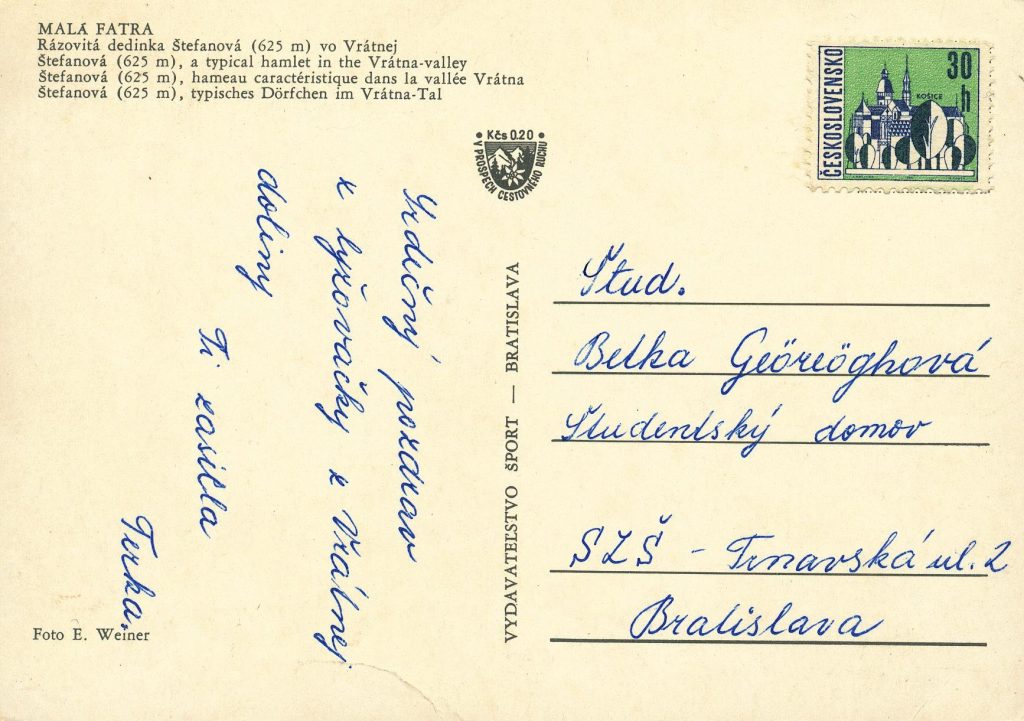 MALÁ FATRA
Rázovitá dedinka Štefanová (625 m) vo Vrátnej
Štefanová (625 m), a typical hamlet in the Vrátna-valley
Štefanová (625 m), hameau caractéristique dans la vallée Vrátna
Štefanová (625 m), typisches Dörfchen im Vrátna-Tal
Kčs 0.20
V PROSPECH CESTOVNÉHO RUCHU
ČESKOSLOVENSKO
30 h
KOŠICE
Srdečný pozdrav
z lyžovačky z Vrátnej
doliny
Ti zasiela
Terka.
VYDAVATEĽSTVO ŠPORT — BRATISLAVA
Štud.
Betka Geöreöghová
Študentský domov
SZŠ - Trnavská ul. 2
Bratislava
Foto E. Weiner